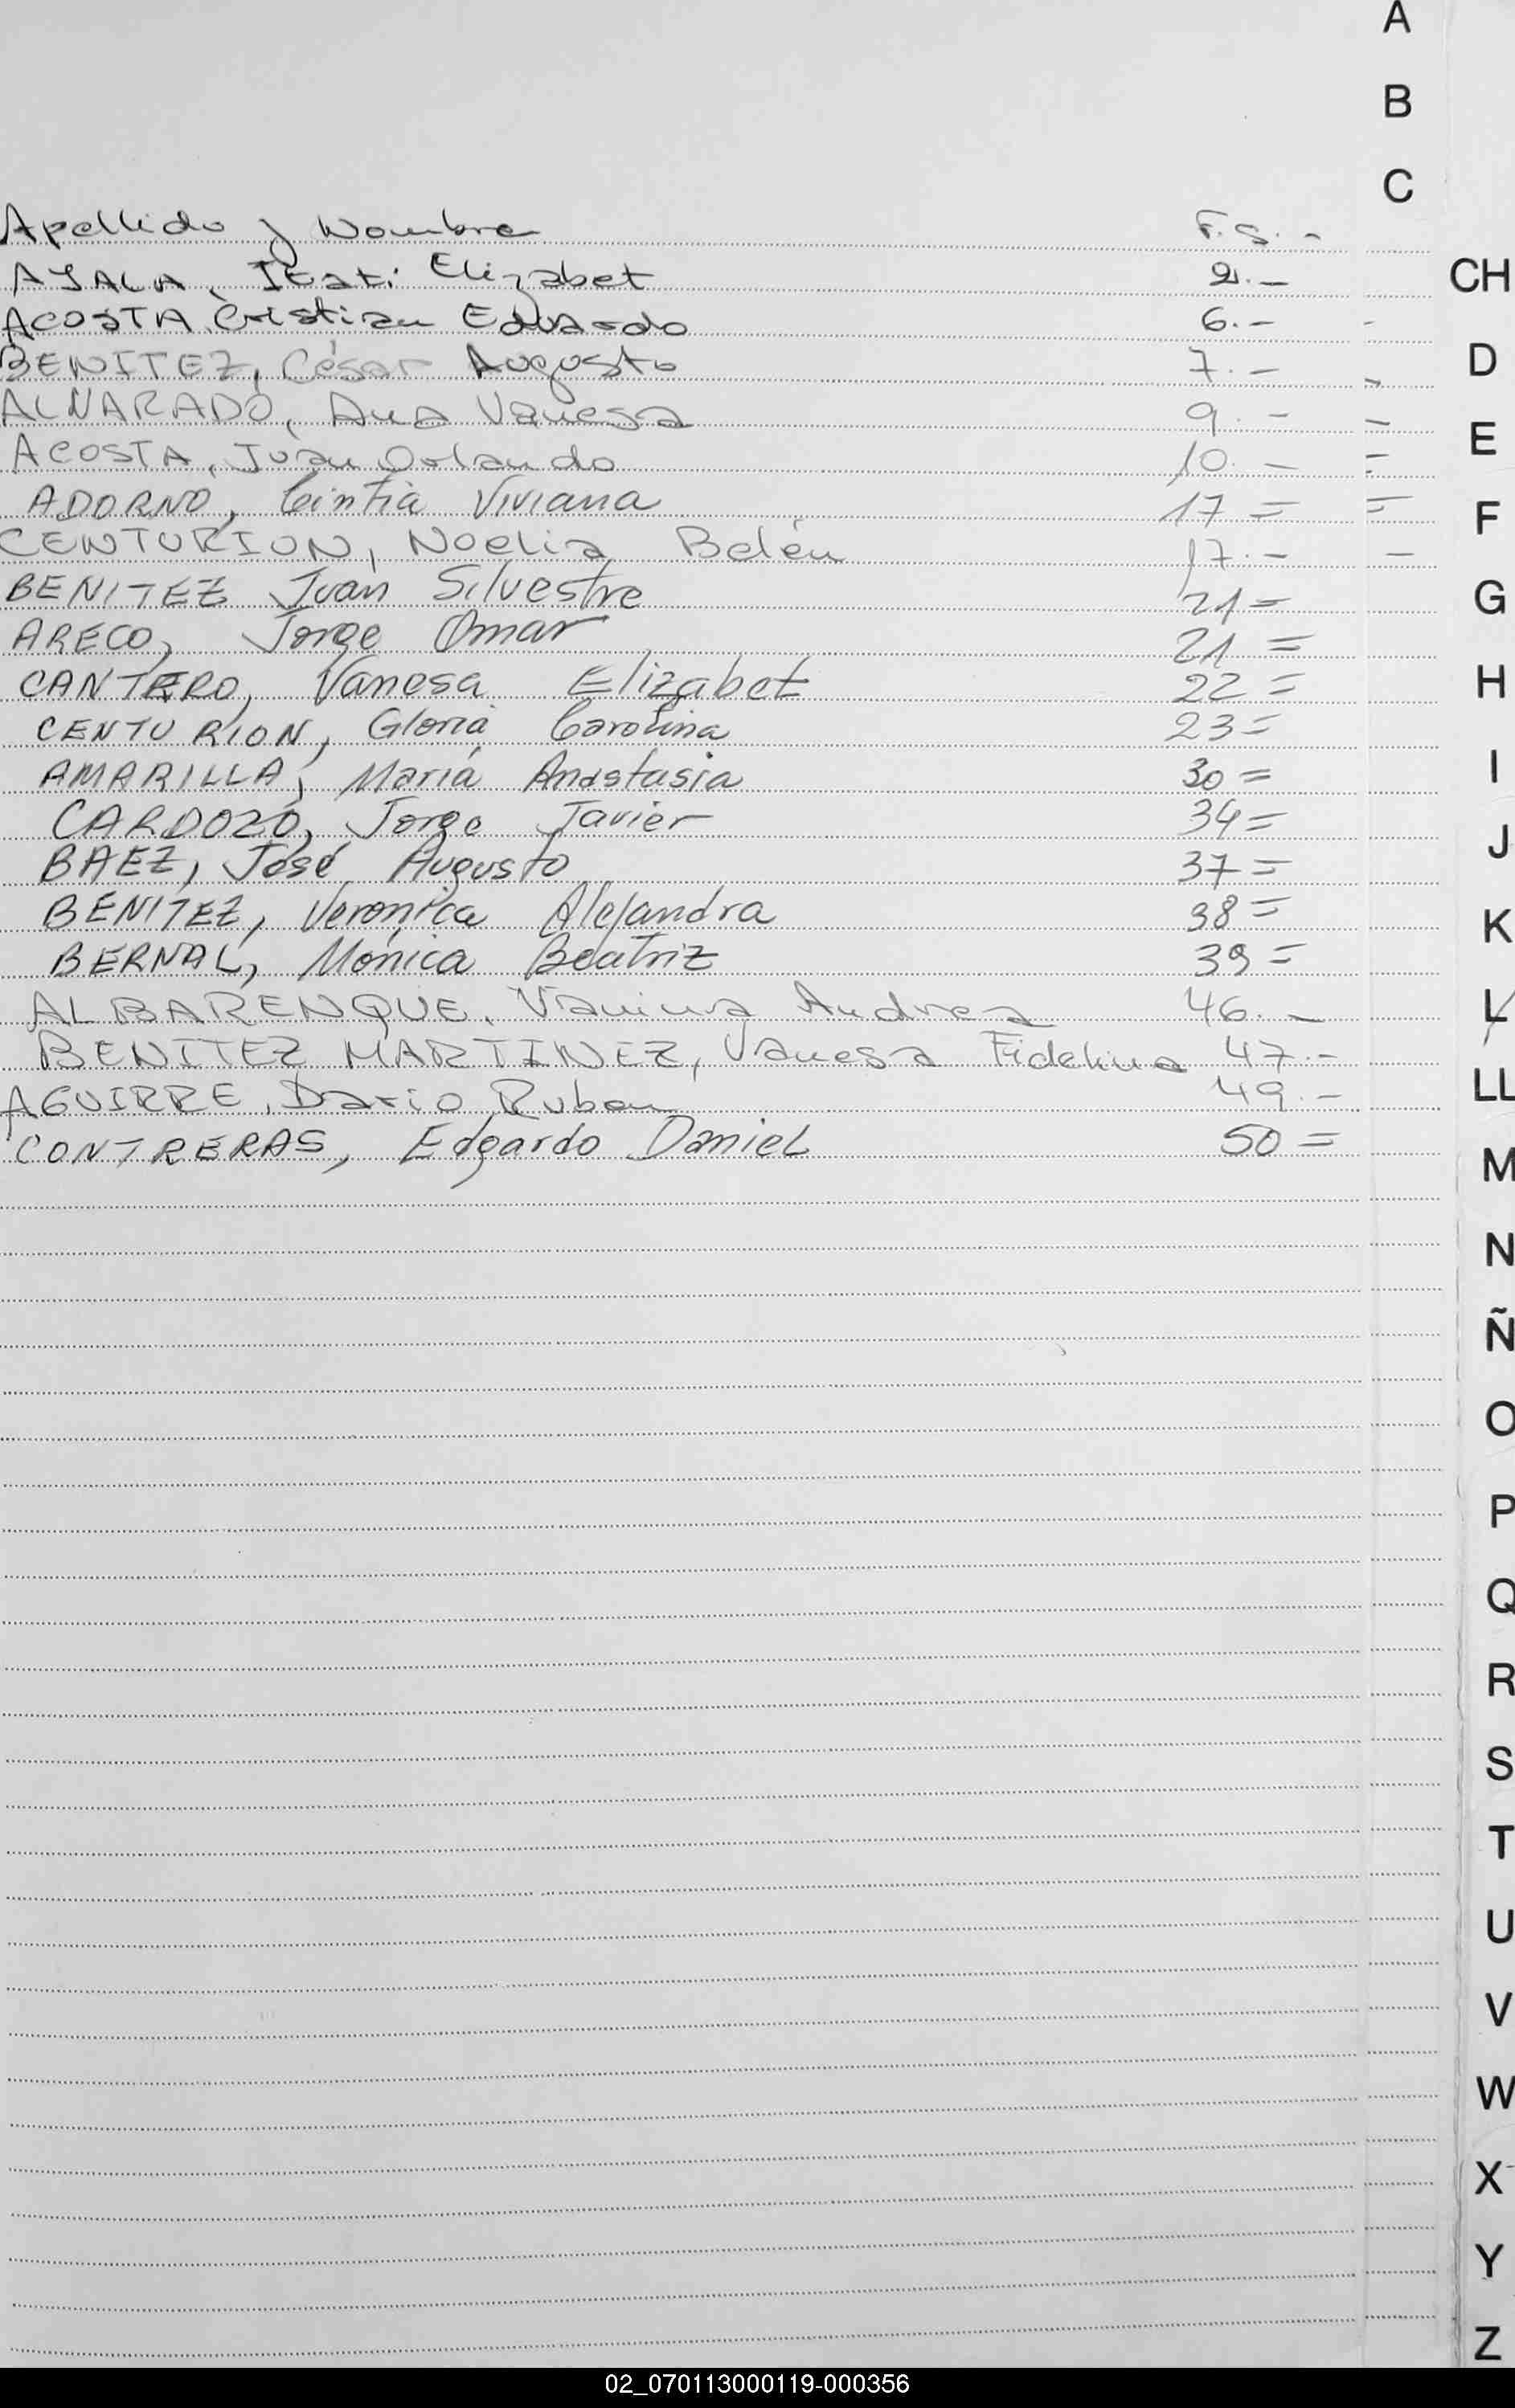 A
B
C
Apellido y Nombre F.S.-
AYALA, Itatí Elizabet 2.-
ACOSTA, Cristian Eduardo 6.- -
BENITEZ, César Augusto 7.- -
ALVARADO, Ana Vanesa 9.- -
ACOSTA, Juan Orlando 10.- =
ADORNO, Cintia Viviana 17= =
CENTURION, Noelia Belén 17.- -
BENITEZ Juan Silvestre 21=
ARECO, Jorge Omar 21=
CANTERO, Vanesa Elizabet 22=
CENTURION, Gloria Carolina 23=
AMARILLA, María Anastasia 30=
CARDOZO, Jorge Javier 34=
BAEZ, José Augusto 37=
BENITEZ, Verónica Alejandra 38=
BERNAL, Mónica Beatriz 39=
ALBARENQUE, Vanina Andrea 46.-
BENITEZ MARTINEZ, Vanesa Fidelina 47.-
AGUIRRE, Dario Ruben 49.-
CONTRERAS, Edgardo Daniel 50=
CH
D
E
F
G
H
I
J
K
L
LL
M
N
Ñ
O
P
Q
R
S
T
U
V
W
X
Y
Z
02_070113000119-000356